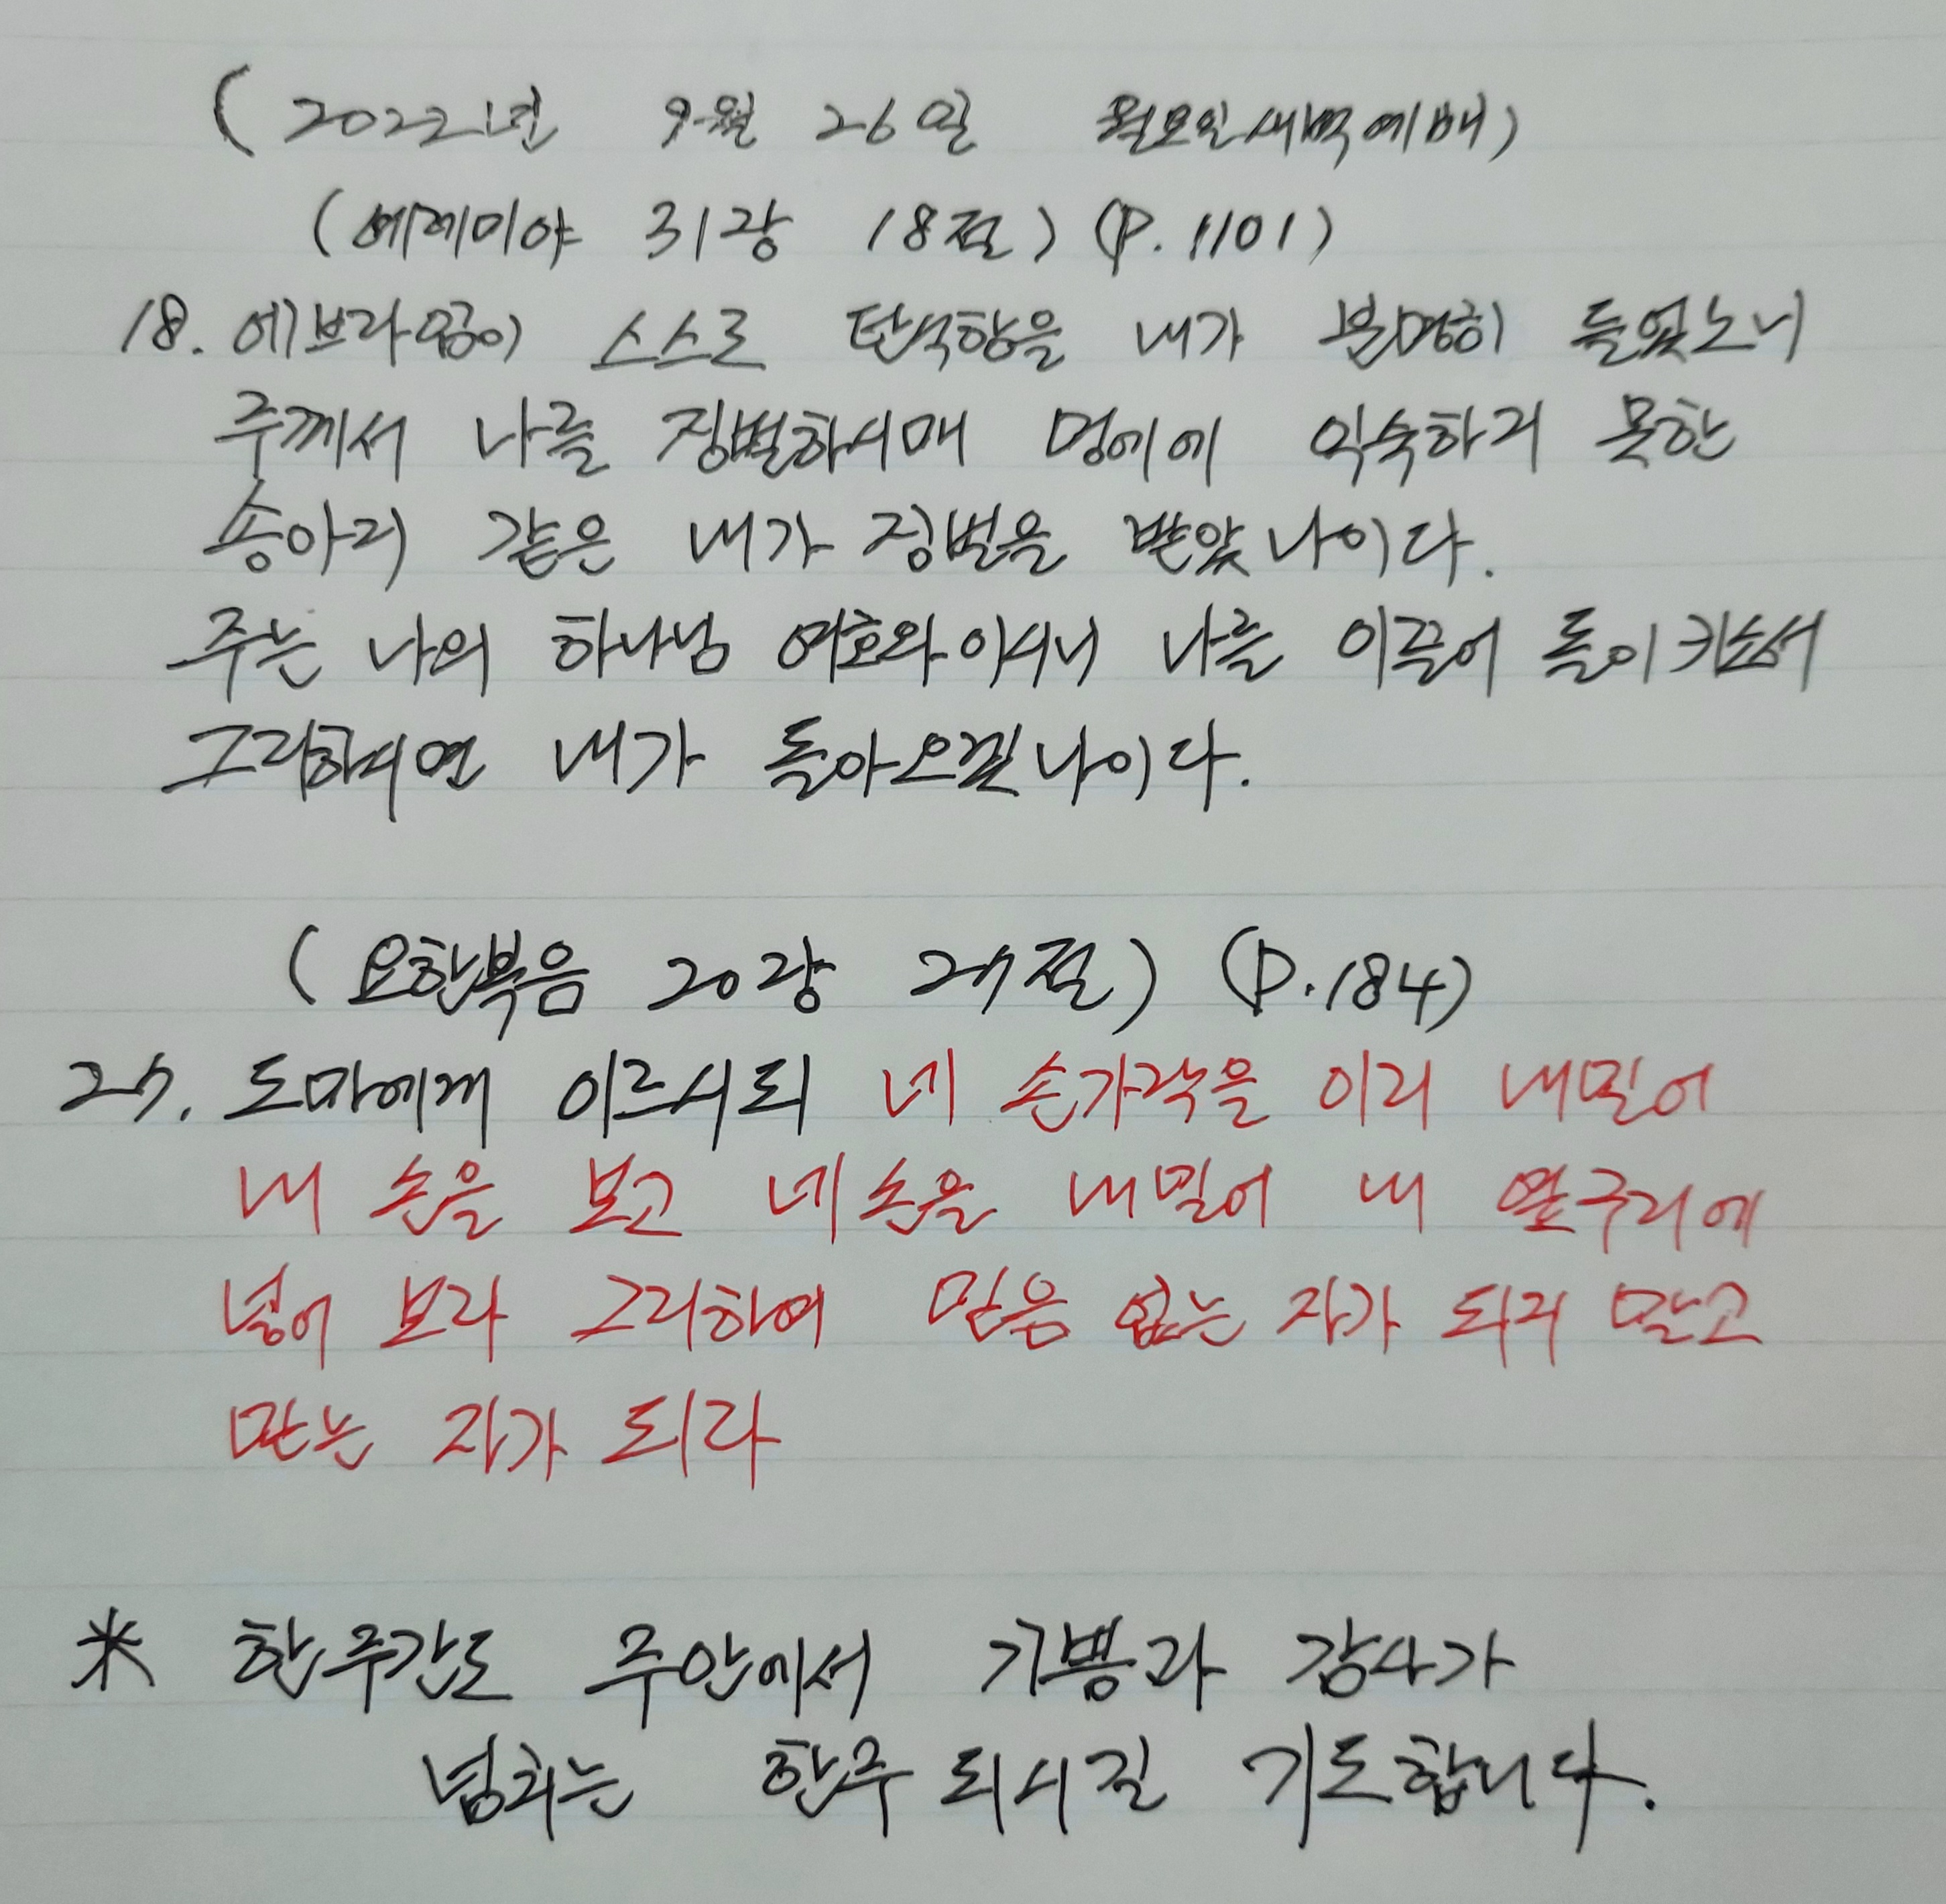 (2022년 9월 26일 월요일새벽예배)
(예레미야 31장 18절) (P.1101)
18. 에브라임이 스스로 탄식함을 내가 분명히 들었노니
주께서 나를 징벌하시매 멍에에 익숙하지 못한
송아지 같은 내가 징벌을 받았나이다.
주는 나의 하나님 여호와이시니 나를 이끌어 돌이키소서
그리하시면 내가 돌아오겠나이다.
(요한복음 20장 27절) (P.184)
27. 도마에게 이르시되 네 손가락을 이리 내밀어
내 손을 보고 네 손을 내밀어 내 옆구리에
넣어 보라 그리하여 믿음 없는 자가 되지 말고
믿는 자가 되라
※ 한주간도 주안에서 기쁨과 감사가
넘치는 한주 되시길 기도합니다.